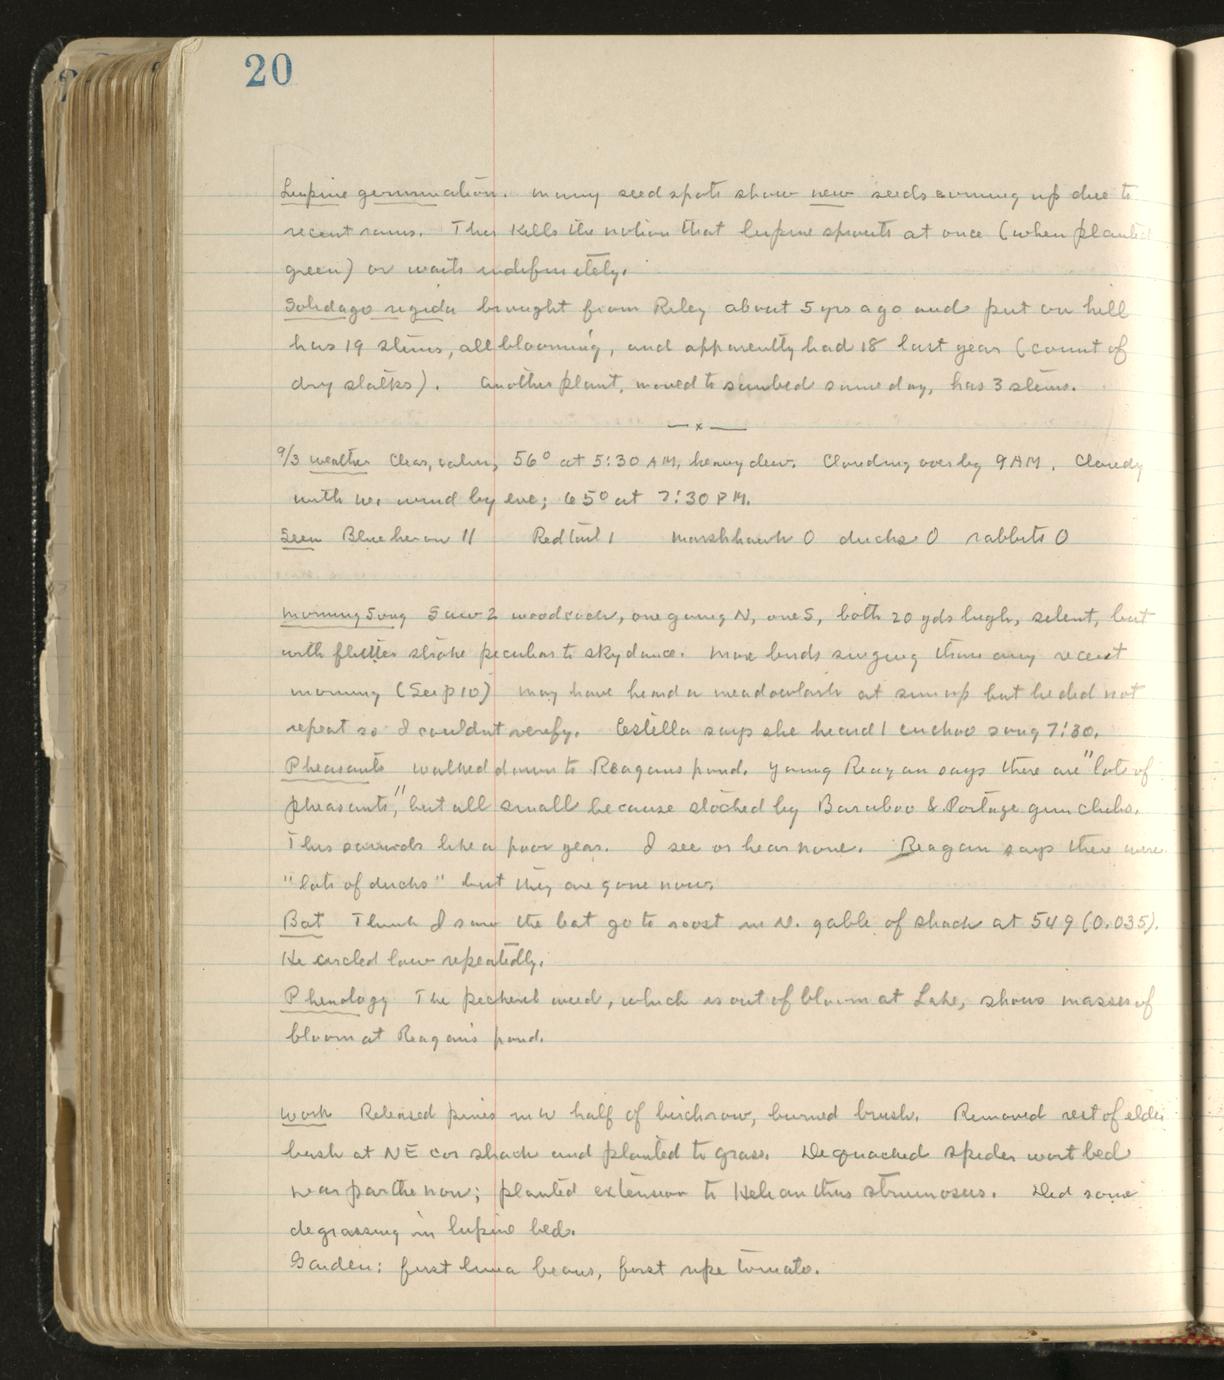 20
Lupine germination. Many seed spots show new seeds coming up due to
recent rains. This kills the notion that lupine sprouts at once (when planted
green) or waits indefinitely.
Solidago rigida brought from Riley about 5 yrs ago and put on hill
has 19 stems, all blooming, and apparently had 18 last year (count of
dry stalks). Another plant, moved to sandbed same day, has 3 stems.
—x—
9/3 Weather Clear, calm, 56° at 5:30 AM, heavy dew. Clouding over by 9AM. Cloudy
with W. wind by eve; 65° at 7:30 PM.
Seen Blue heron 11 Redtail 1 Marshhawk 0 ducks 0 rabbits 0
Morning Song Saw 2 woodcock, one going N, one S, both 20 yds high, silent, but
with flutter stroke peculiar to skydance. More birds singing than any recent
morning (See p 10) May have heard a meadowlark at sunup but he did not
repeat so I couldn't verify. Estella says she heard 1 cuckoo song 7:30.
Pheasants Walked down to Reagans pond. Young Reagan says there are "lots of
pheasants," but all small because stocked by Baraboo & Portage gun clubs.
This sounds like a poor year. I see or hear none. Reagan says there were
"lots of ducks" but they are gone now.
Bat Think I saw the bat go to roost in N. gable of shack at 549 (0.035).
He circled low repeatedly.
Phenology The pickerel weed, which is out of bloom at Lake, shows masses of
bloom at Reagan's pond.
Work Released pines in W half of birchrow, burned brush. Removed rest of elder
bush at NE cor shack and planted to grass. Dequacked spiderwort bed
near parthenon; planted extension to Helianthus strumosus. Did some
degrassing in lupine bed.
Garden: first lima beans, first ripe tomato.